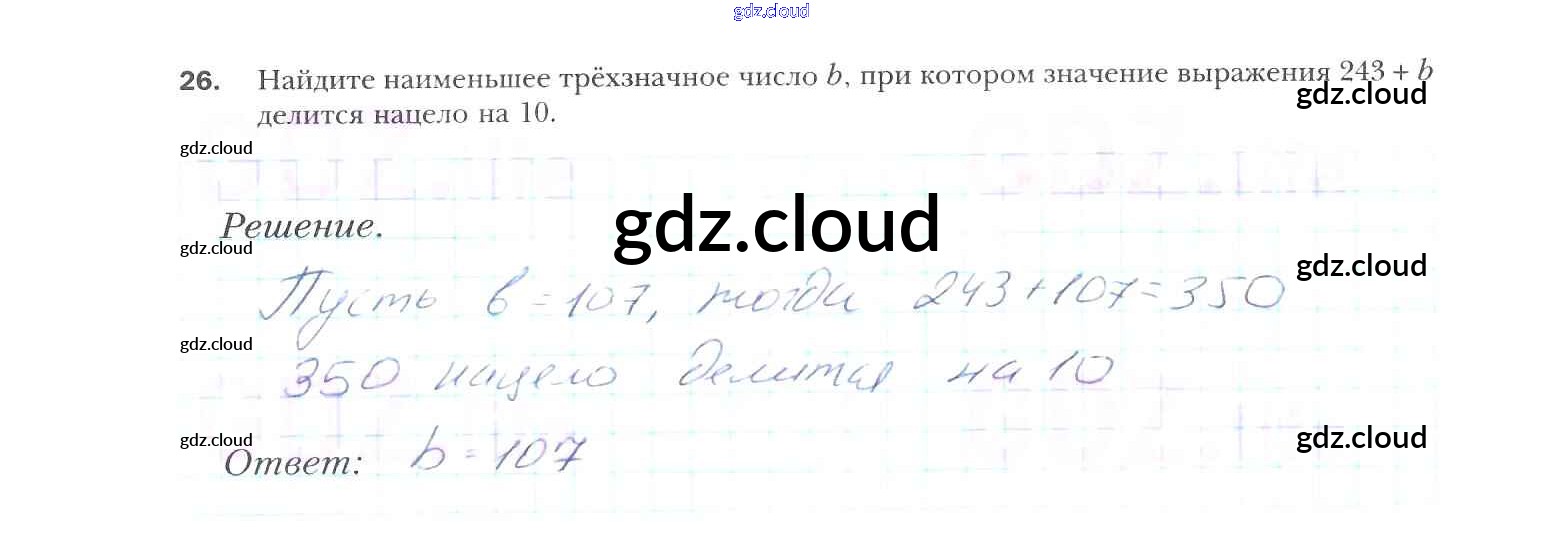 gdz.cloud
26. Найдите наименьшее трёхзначное число b, при котором значение выражения 243 + b
gdz.cloud
делится нацело на 10.
gdz.cloud
Решение.
gdz.cloud
gdz.cloud
gdz.cloud
Пусть b = 107, тогда 243 + 107 = 350
gdz.cloud
350 нацело делится на 10
gdz.cloud
gdz.cloud
Ответ: b = 107